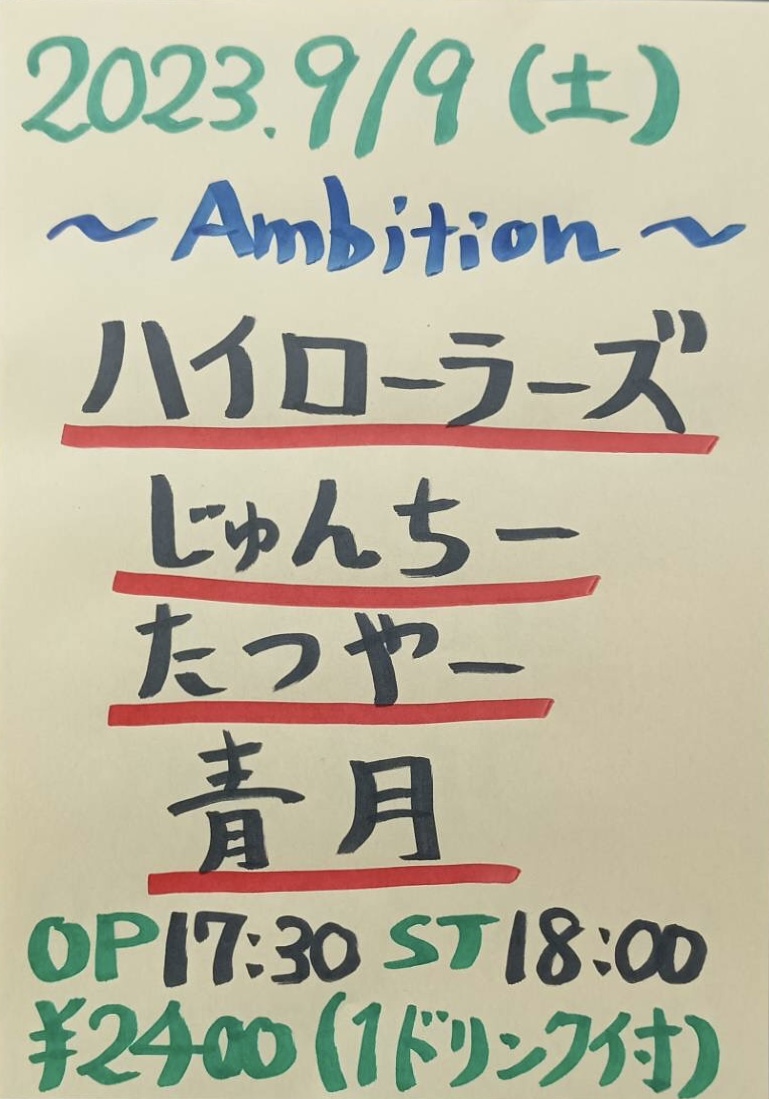 2023.9/9(土)
～Ambition～
ハイローラーズ
じゅんちー
たつやー
青月
OP17:30 ST18:00
¥2400(1ドリンク付)